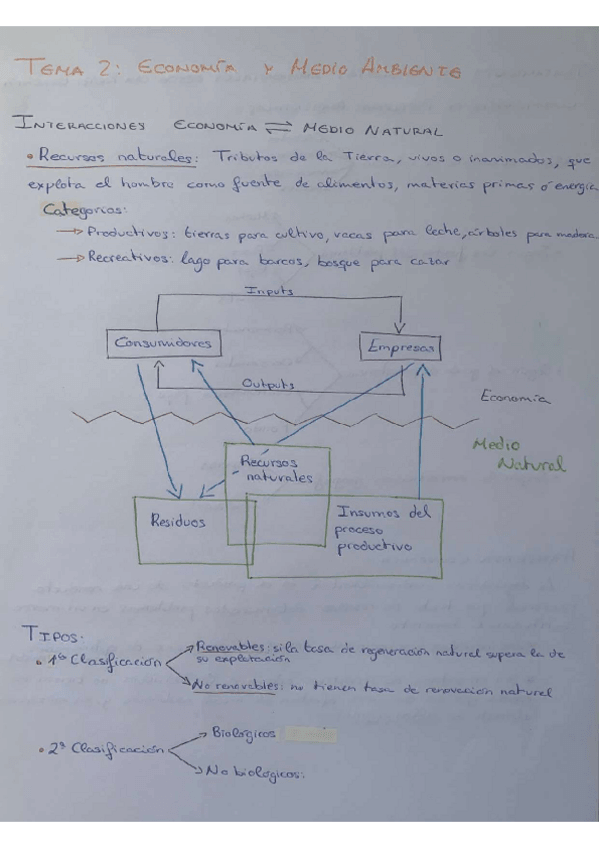 TEMA 2: ECONOMÍA Y MEDIO AMBIENTE
INTERACCIONES ECONOMÍA ⇌ MEDIO NATURAL
• Recursos naturales: Tributos de la Tierra, vivos o inanimados, que
explota el hombre como fuente de alimentos, materias primas o energía
Categorías:
→ Productivos: tierras para cultivo, vacas para leche, árboles para madera
→ Recreativos: lago para barcos, bosque para cazar
Inputs
Consumidores
Empresas
Outputs
Economía
Medio
Natural
Recursos
naturales
Residuos
Insumos del
proceso
productivo
TIPOS:
• 1ª Clasificación
Renovables: si la tasa de regeneración natural supera la de
su explotación
No renovables: no tienen tasa de renovación natural
• 2ª Clasificación
Biológicos
No biológicos: